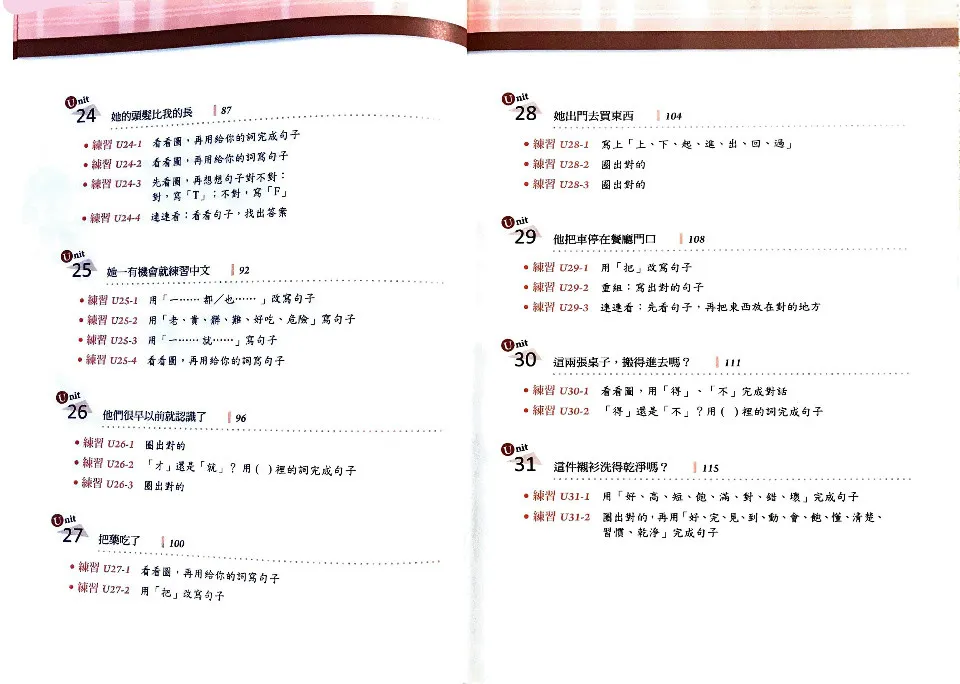 Unit 24 她的頭髮比我的長 87
• 練習 U24-1 看看圖，再用給你的詞完成句子
• 練習 U24-2 看看圖，再用給你的詞寫句子
• 練習 U24-3 先看圖，再想想句子對不對：
對，寫「T」；不對，寫「F」
• 練習 U24-4 連連看：看看句子，找出答案
Unit 25 她一有機會就練習中文 92
• 練習 U25-1 用「一…… 都／也…… 」改寫句子
• 練習 U25-2 用「老、貴、髒、難、好吃、危險」寫句子
• 練習 U25-3 用「一…… 就……」寫句子
• 練習 U25-4 看看圖，再用給你的詞寫句子
Unit 26 他們很早以前就認識了 96
• 練習 U26-1 圈出對的
• 練習 U26-2 「才」還是「就」？用( )裡的詞完成句子
• 練習 U26-3 圈出對的
Unit 27 把藥吃了 100
• 練習 U27-1 看看圖，再用給你的詞寫句子
• 練習 U27-2 用「把」改寫句子
Unit 28 她出門去買東西 104
• 練習 U28-1 寫上「上、下、起、進、出、回、過」
• 練習 U28-2 圈出對的
• 練習 U28-3 圈出對的
Unit 29 他把車停在餐廳門口 108
• 練習 U29-1 用「把」改寫句子
• 練習 U29-2 重組：寫出對的句子
• 練習 U29-3 連連看：先看句子，再把東西放在對的地方
Unit 30 這兩張桌子，搬得進去嗎？ 111
• 練習 U30-1 看看圖，用「得」、「不」完成對話
• 練習 U30-2 「得」還是「不」？用( )裡的詞完成句子
Unit 31 這件襯衫洗得乾淨嗎？ 115
• 練習 U31-1 用「好、高、短、飽、滿、對、錯、壞」完成句子
• 練習 U31-2 圈出對的，再用「好、完、見、到、動、會、飽、懂、清楚、
習慣、乾淨」完成句子